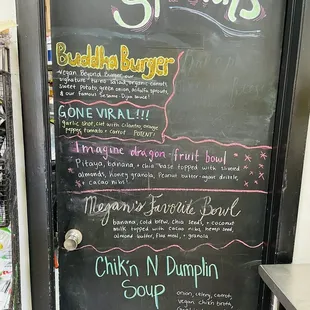 Specials
Buddha Burger
Vegan Beyond Burger, our
signature tuno salad, organic carrots,
sweet potato, green onion, alfalfa sprouts
& our famous Sesame-Dijon sauce!
GONE VIRAL!!!
garlic shot, cut with cilantro, orange
pepper, tomato + carrot POTENT!
Imagine dragon-fruit bowl
Pitaya, banana + chia base topped with sliced
almonds, honey granola, Peanut butter-agave drizzle,
+ cacao nibs!
Megan's Favorite Bowl
banana, cold brew, chia seeds, + coconut
milk topped with cacao nibs, hemp seed,
almond butter, flax meal, + granola
Chik'n N Dumplin
Soup
onion, celery, carrot,
vegan chikn broth,